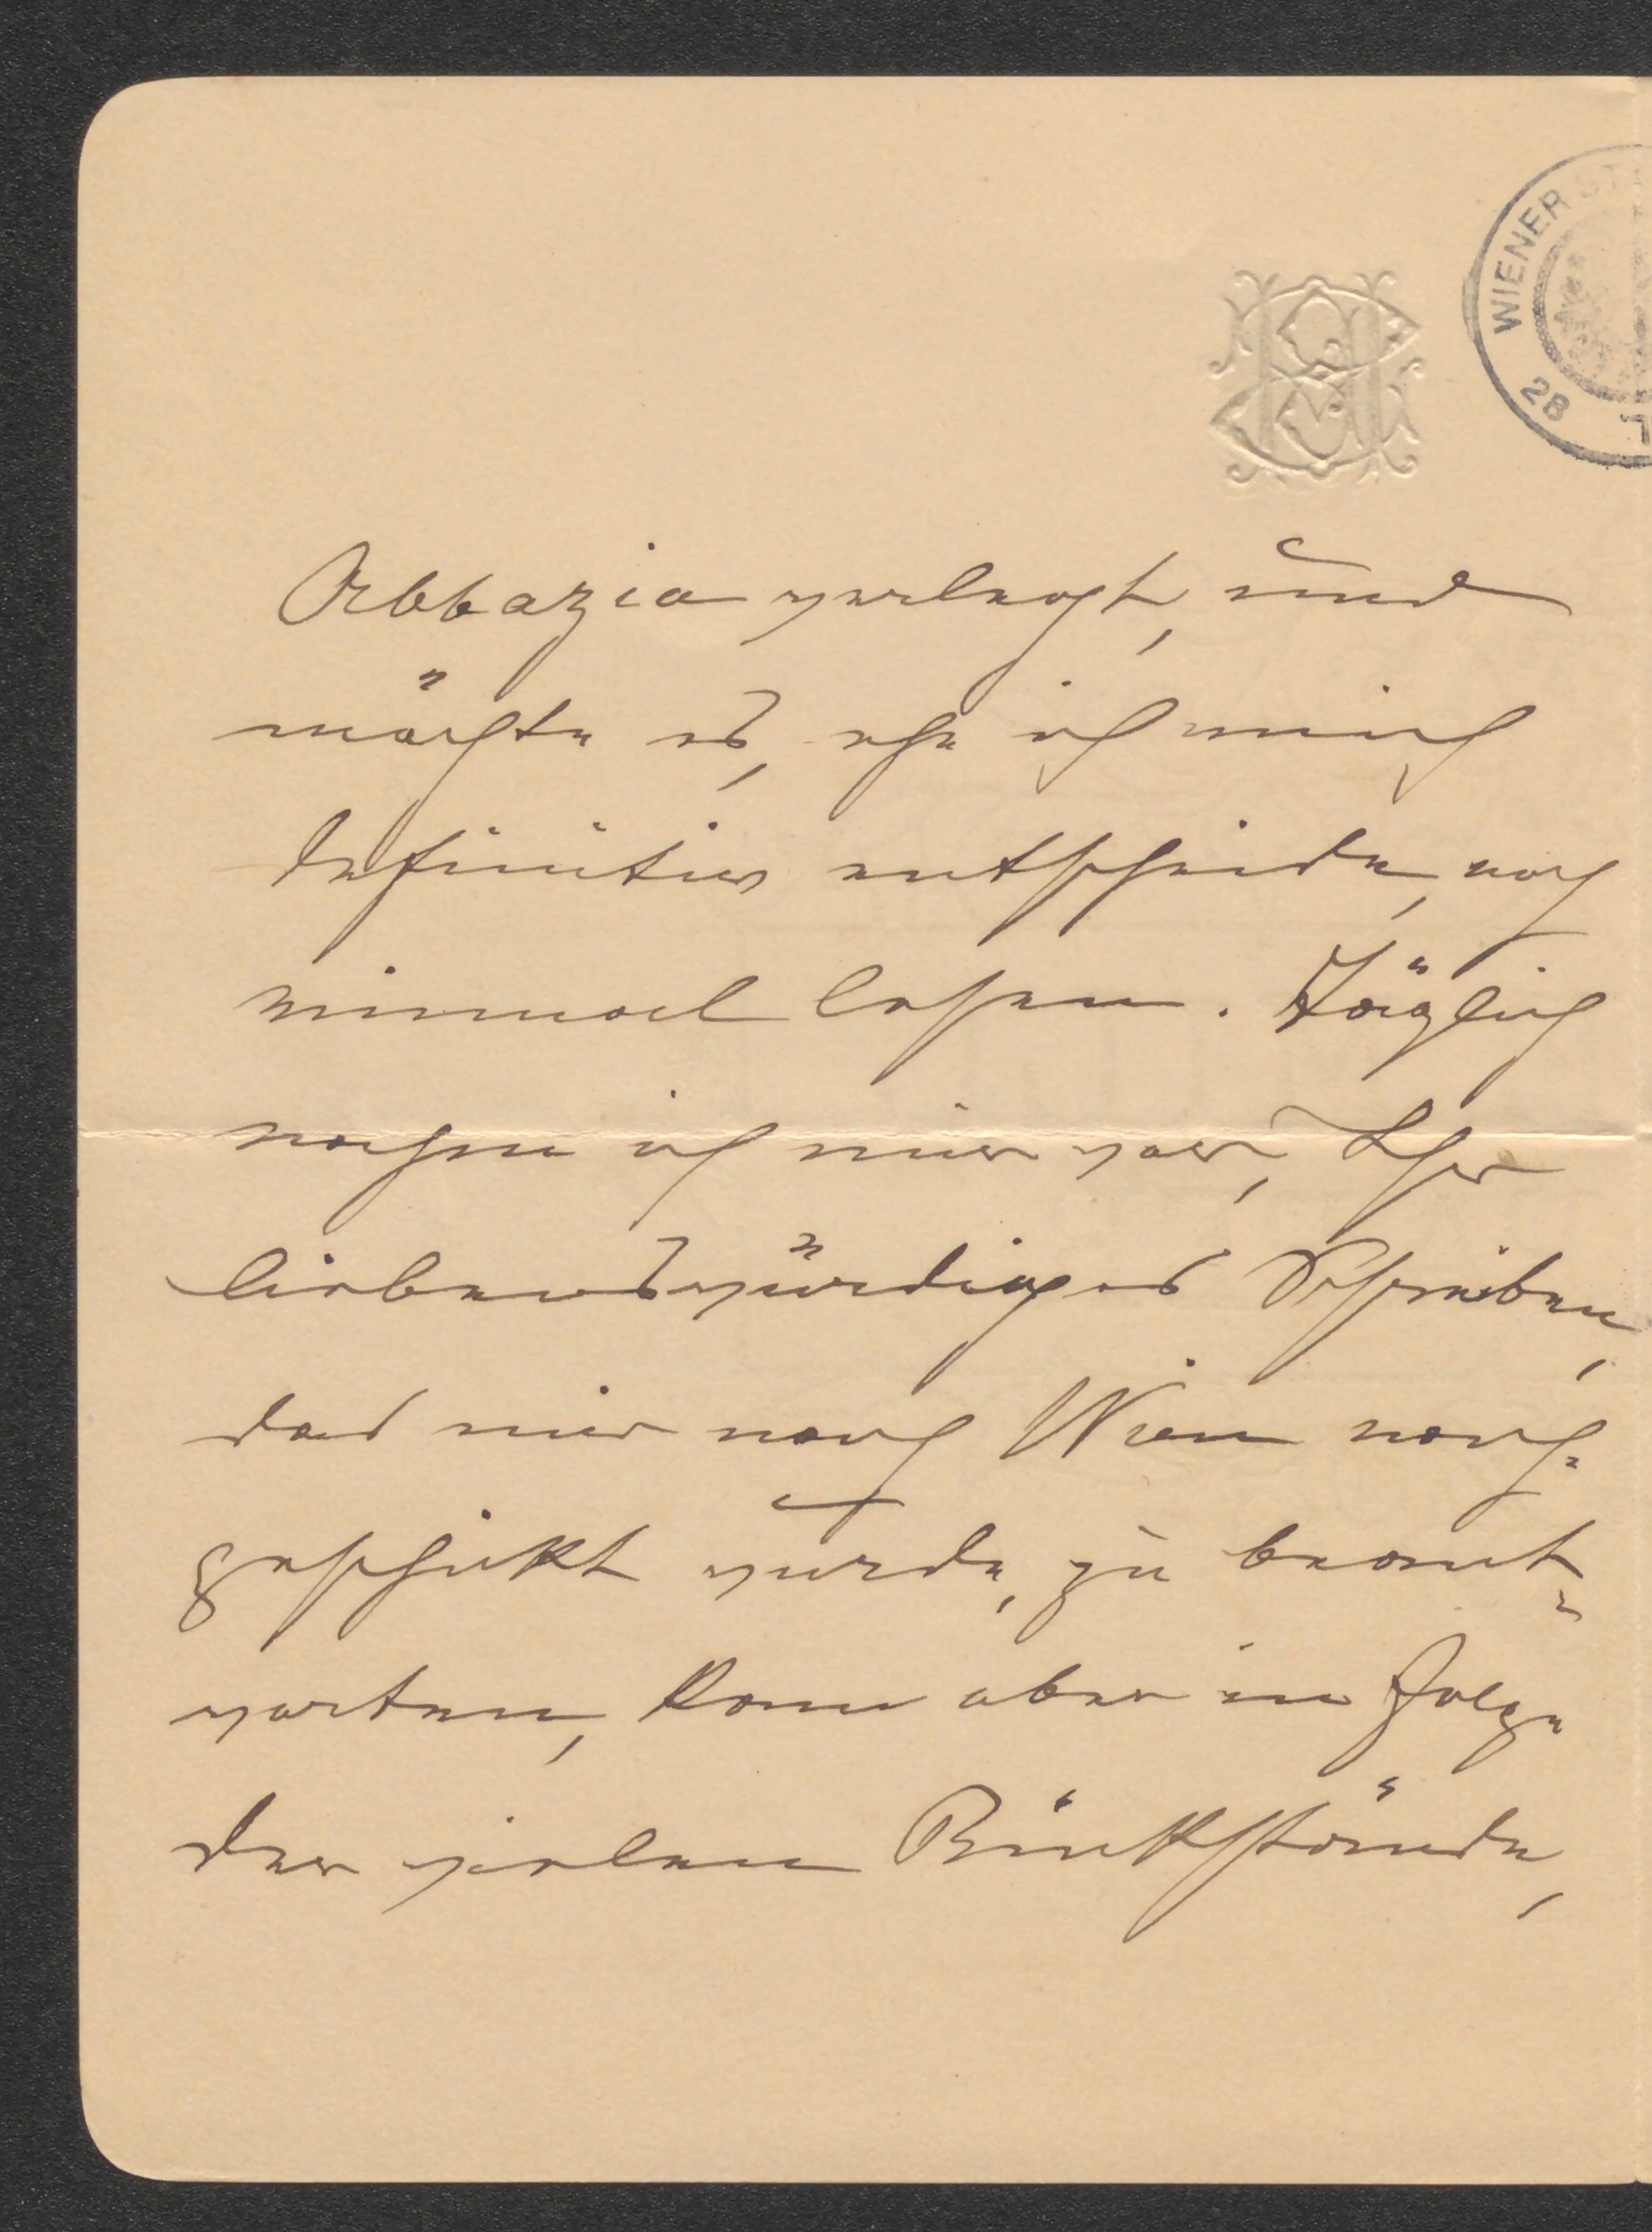 WIENER
28
Abbazia verlegt, und
möchte es, ehe ich mich
definitiv entscheide, noch
einmal lesen. Täglich
nehme ich mir vor, Ihr
liebenswürdiges Schreiben,
das mir nach Wien nach-
geschikt wurde, zu beant-
worten, kam aber in Folge
der vielen Rückstände,